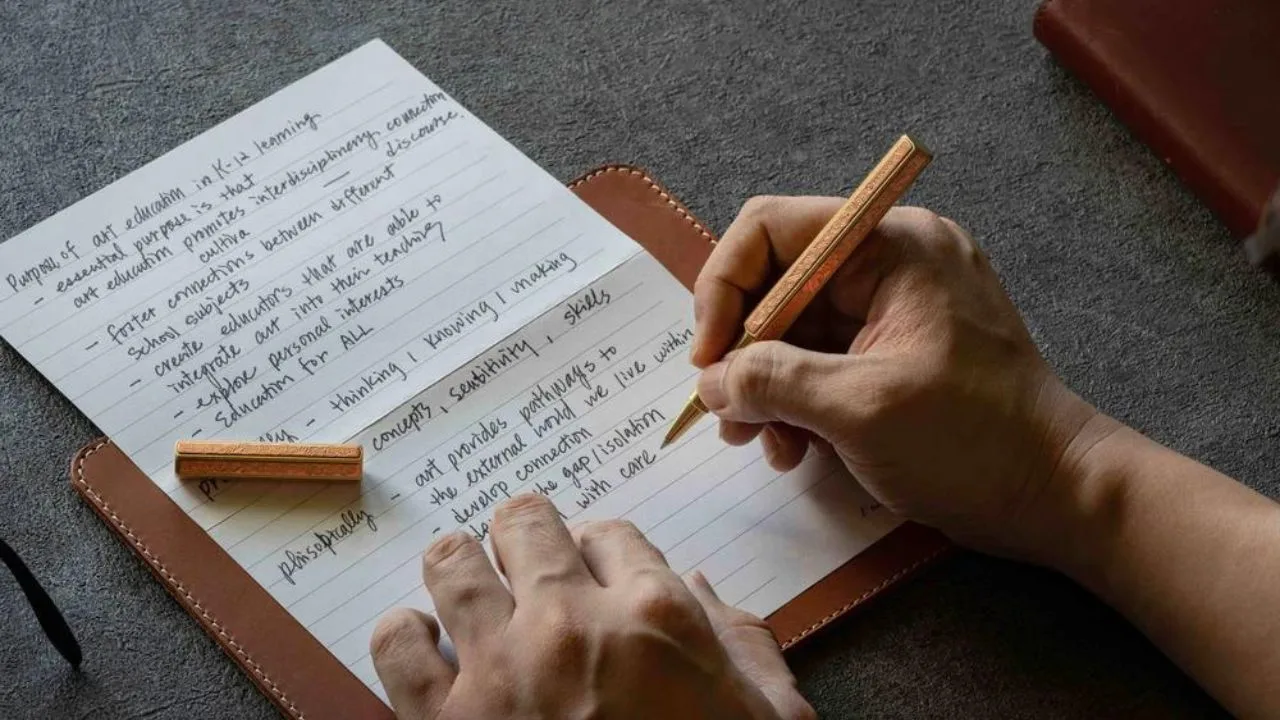 Purpose of art education in K-12 learning
- essential purpose is that
art education promotes interdisciplinary connection
cultiva — discourse.
- foster connections between different
school subjects
- create educators that are able to
integrate art into their teaching
- explore personal interests
- Education for ALL
- thinking / knowing / making
concepts, sensitivity, skills
- art provides pathways to
the external world we live within
- develop connection
the gap/isolation
with care
phisolphically